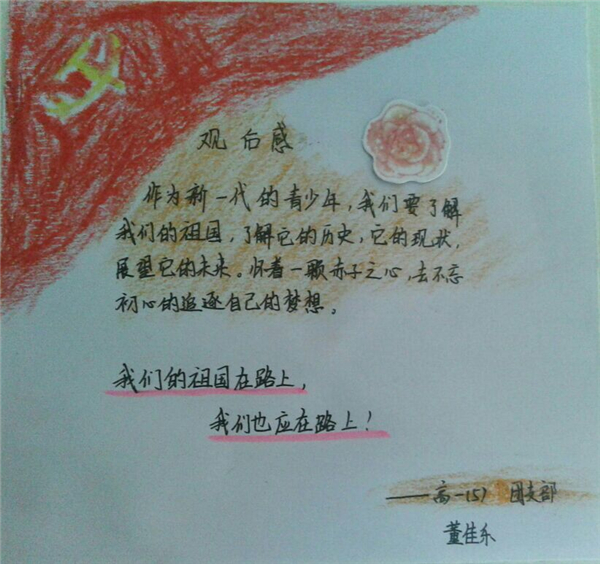 观后感
作为新一代的青少年,我们要了解
我们的祖国,了解它的历史,它的现状,
展望它的未来。怀着一颗赤子之心,去不忘
初心的追逐自己的梦想。
我们的祖国在路上,
我们也应在路上!
——高一(5) 团支部
董佳乐